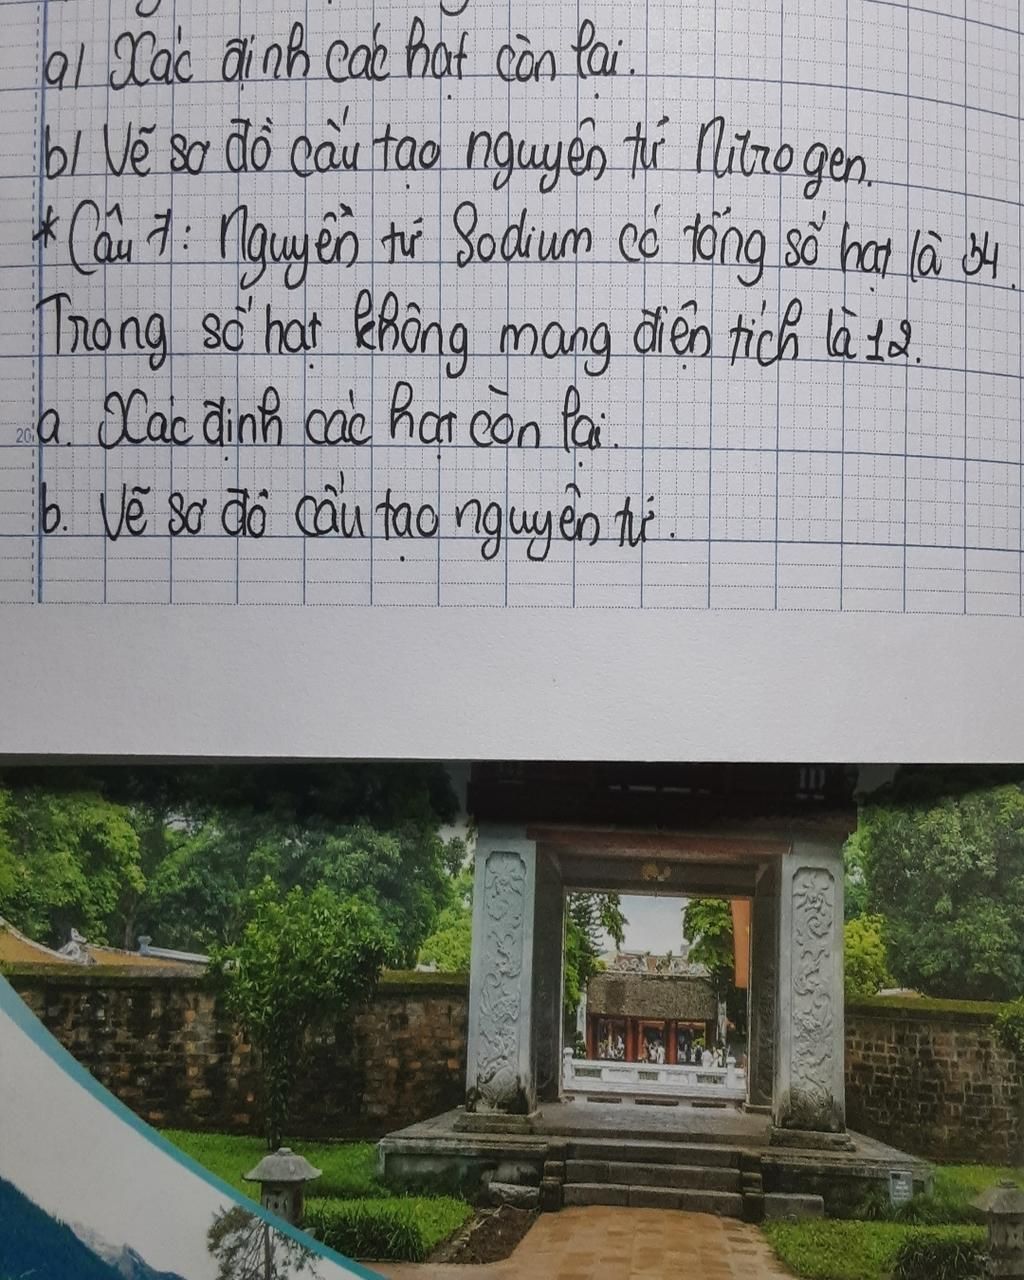 a/ Xác định các hạt còn lại.
b/ Vẽ sơ đồ cấu tạo nguyên tử Nitrogen.
* Câu 7: Nguyên tử Sodium có tổng số hạt là 34.
Trong số hạt không mang điện tích là 12.
20
a. Xác định các hạt còn lại.
b. Vẽ sơ đồ cấu tạo nguyên tử.